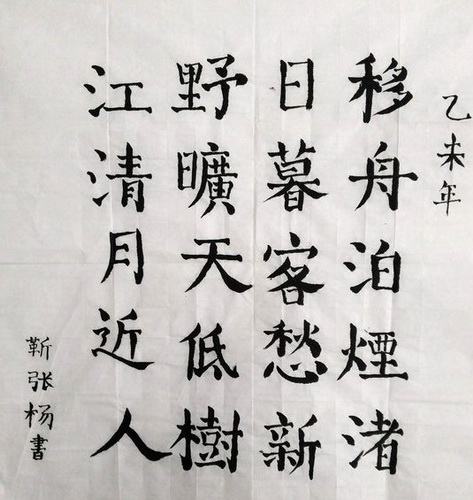 乙未年
移舟泊煙渚
日暮客愁新
野曠天低樹
江清月近人
靳张杨書